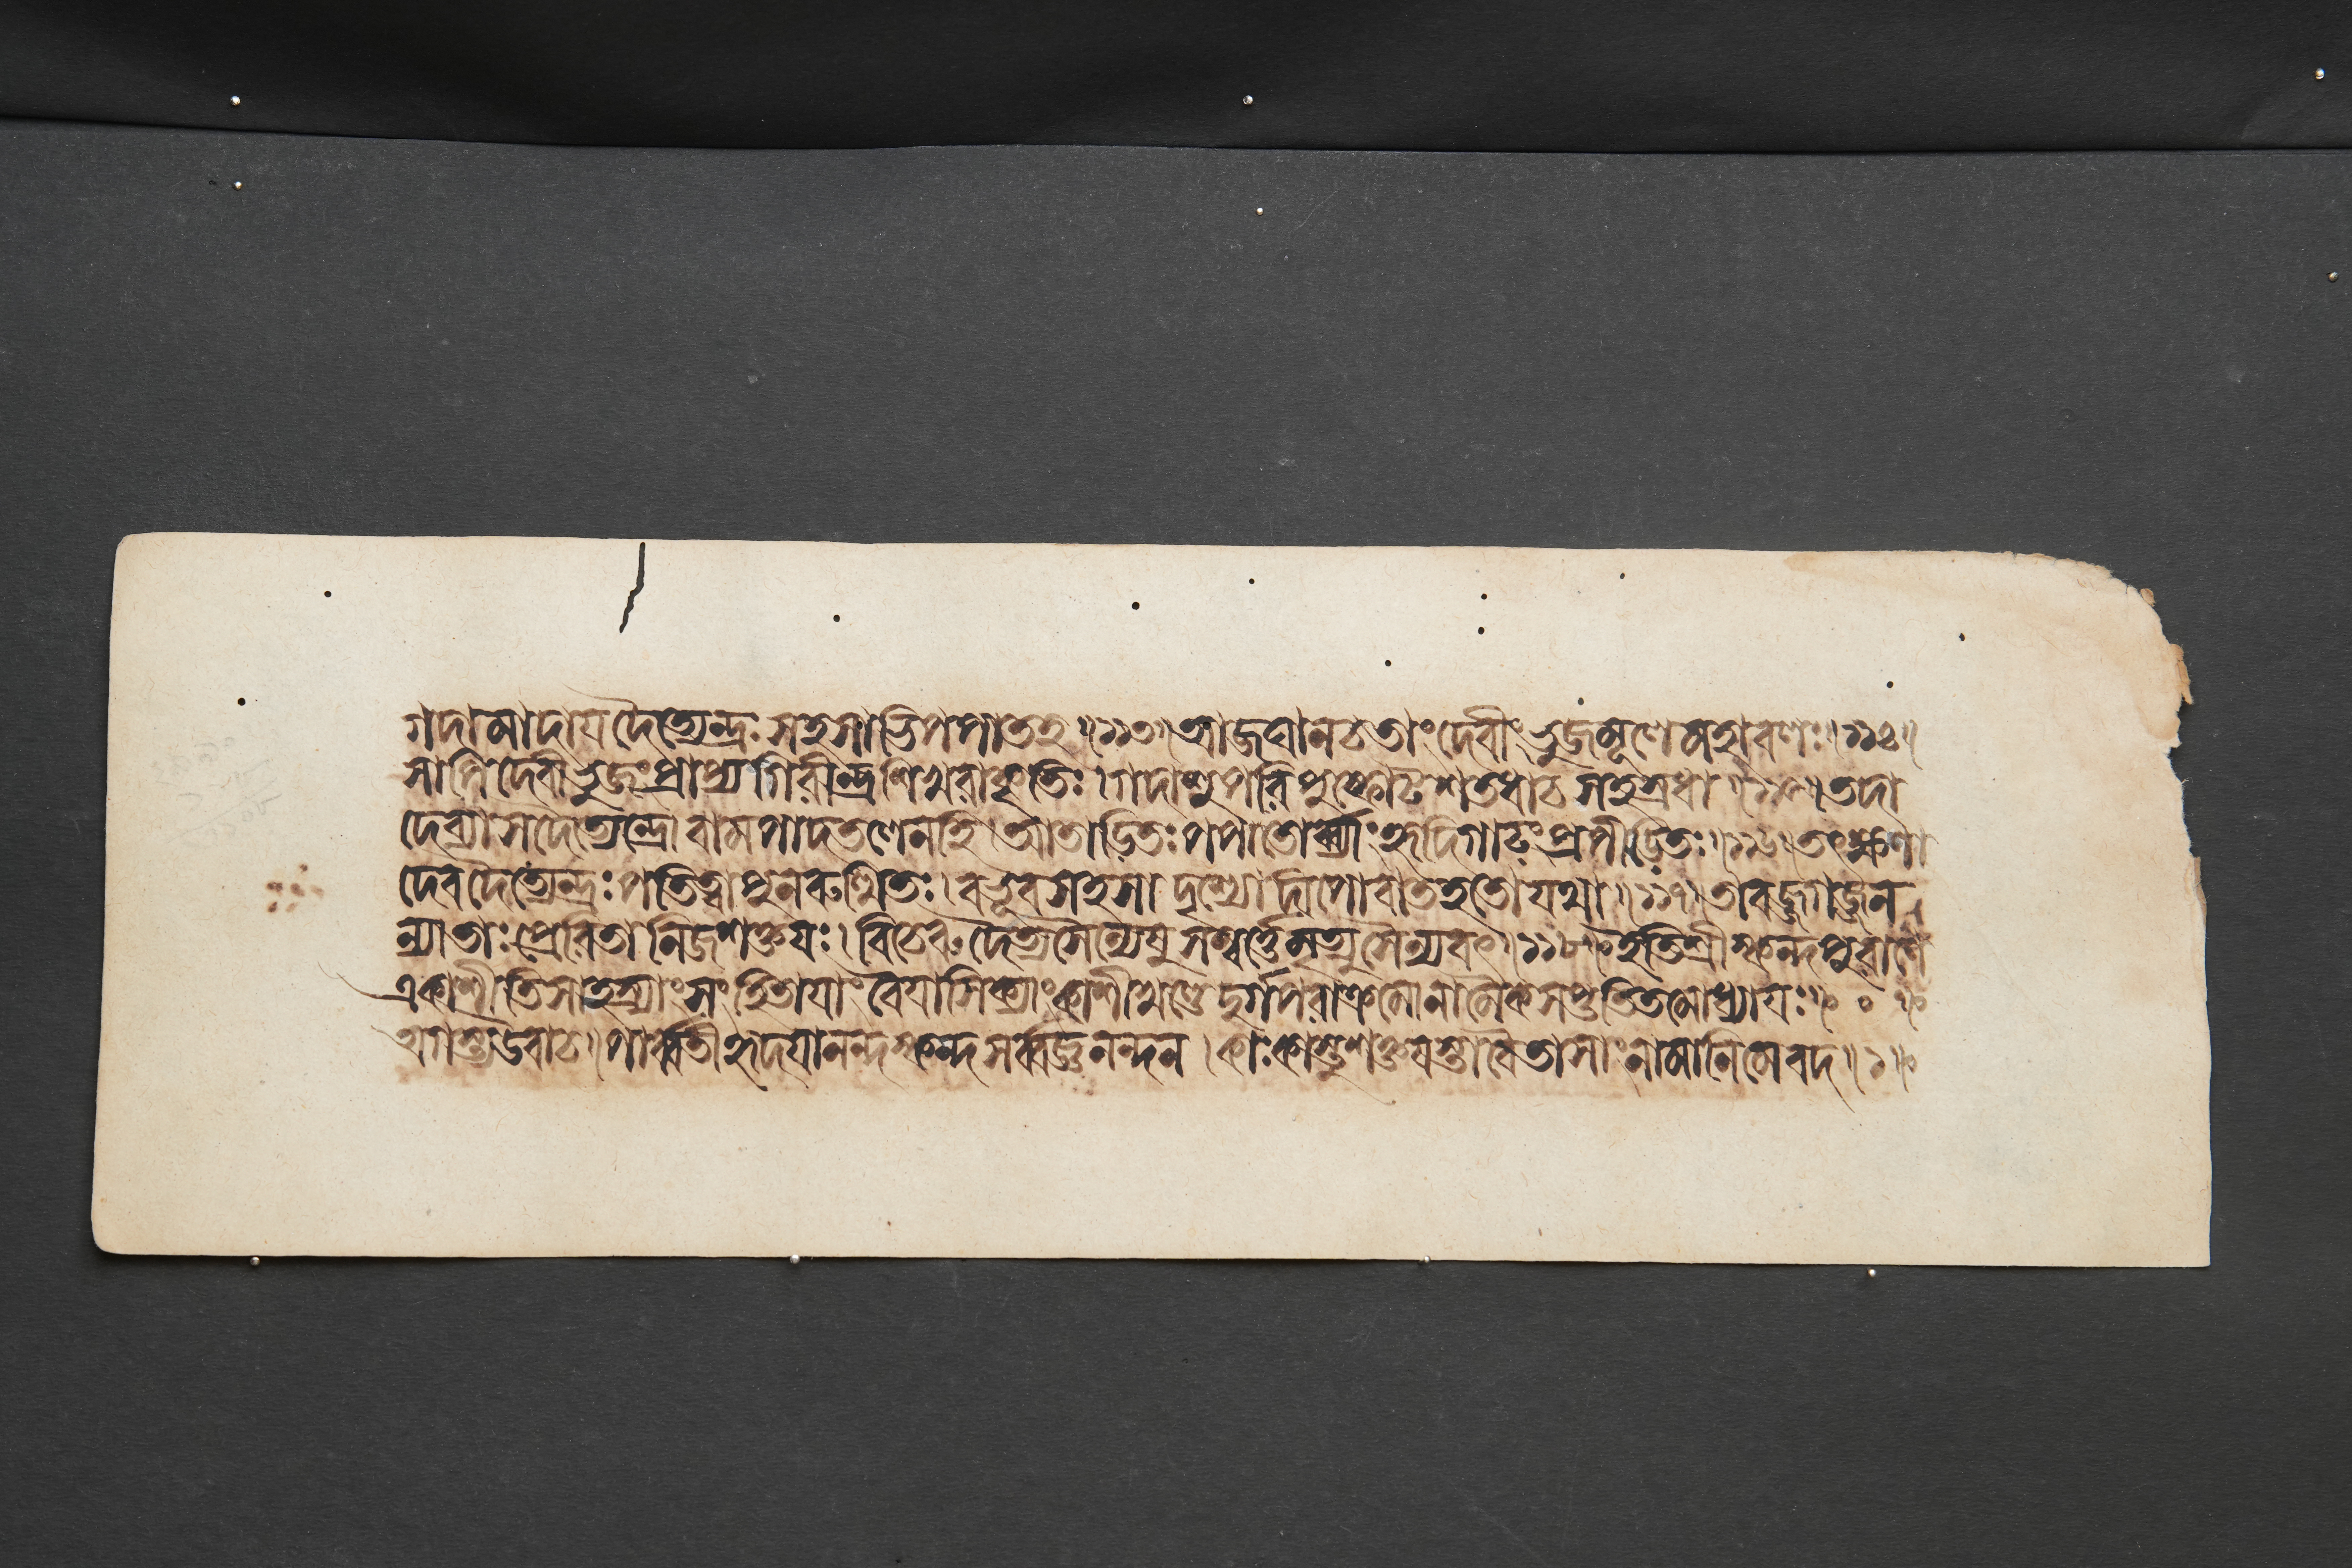 গদামাদায দৈত্যেন্দ্রঃ সহসাভিপপাতহ ॥১১৩॥ আজঘান চ তাং দেবীং ভুজমূলে মহাবলঃ ॥১১৪॥
সাপি দেবীভুজং প্রাপ্য গিরীন্দ্রশিখরাকৃতিঃ । গদাশু পরিপুস্ফোট শতধা চ সহস্রধা ॥১১৫॥ তদা
দেব্যা স দৈত্যেন্দ্রো বামপাদতলেন হি । আতাডিতঃ পপাতোর্ব্ব্যাং হৃদি গাঢং প্রপীডিতঃ ॥১১৬॥ তৎক্ষণা
দেব দৈত্যেন্দ্রঃ পতিত্বা পুনরুত্থিতঃ । বভূব সহসা দৃশ্যো দীপো বাতহতো যথা ॥১১৭॥ তাবজ্জগজ্জন
ন্যা তাঃ প্রেরিতা নিজশক্তযঃ । বিচেরুর্দৈত্যসৈন্যেষু সম্বর্ত্তে মৃত্যুসৈন্যবৎ ॥১১৮॥ ইতি শ্রীস্কন্দপুরাণে
একাশীতিসাহস্র্যাং সংহিতাযাং বৈযাসিক্যাং কাশীখণ্ডে দুর্গপরাক্রমো নামৈকসপ্ততিতমোধ্যাযঃ ॥ ० ॥
অগস্ত্য উবাচ ॥ পার্ব্বতীহৃদযানন্দ স্কন্দ সর্ব্বজ্ঞনন্দন । কাঃ কাস্তু শক্তযস্তা বৈ তাসাং নামানি মে বদ ॥১॥